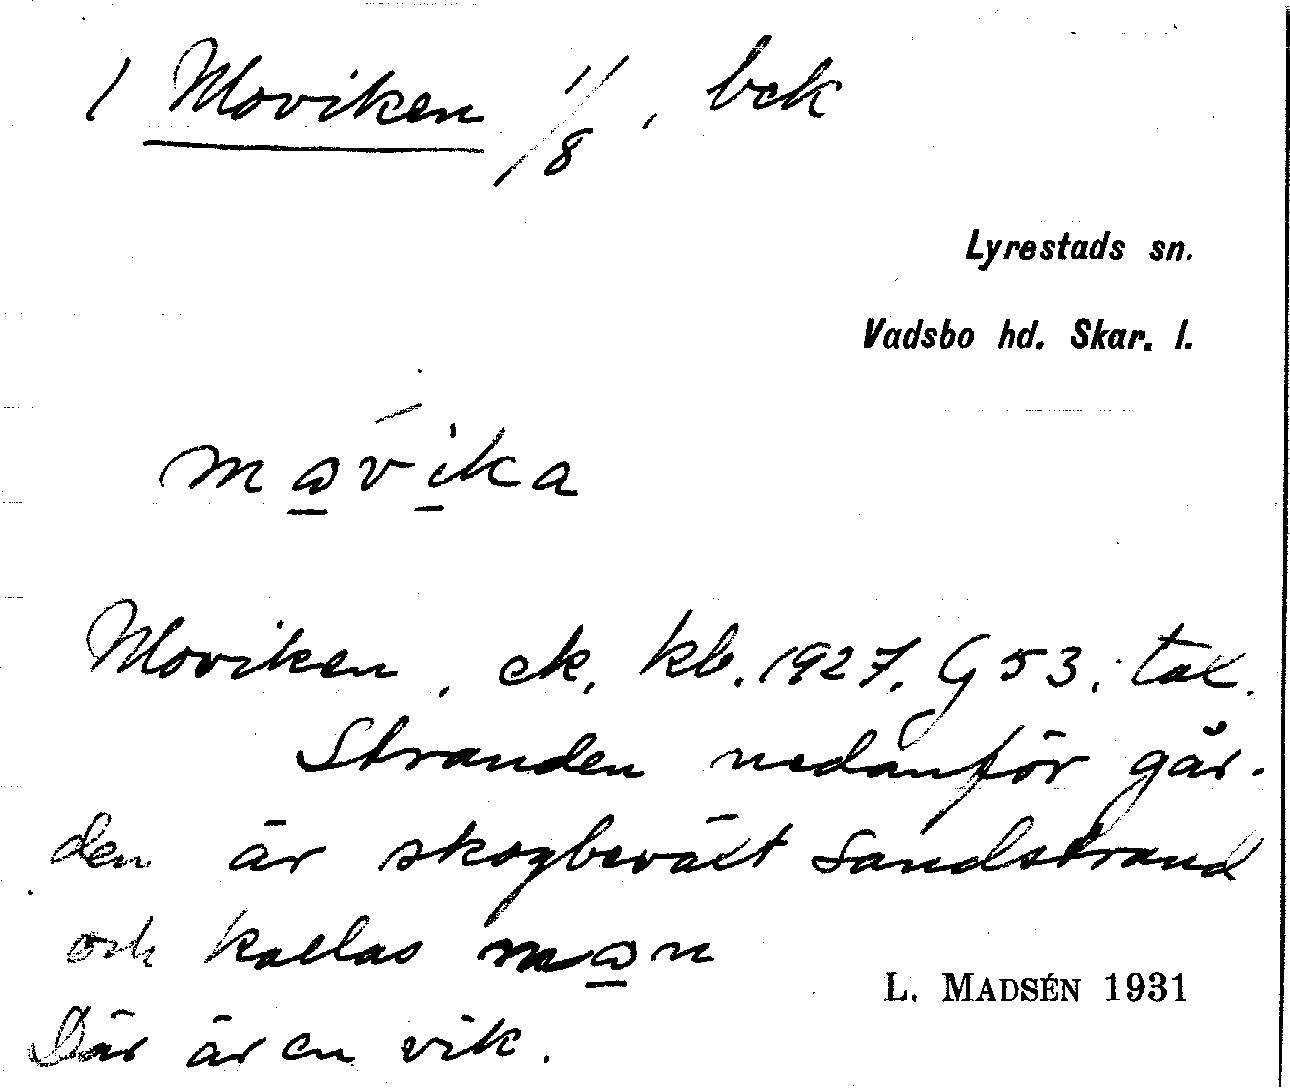 1 Moviken 1/8, bek
Lyrestads sn.
Vadsbo hd. Skar. l.
mɷ̲́vi̲ka
Moviken, ek. kb. 1927, G 53; tal.
Stranden nedanför går-
den är skogbeväxt sandstrand
och kallas mɷ̲n
Där är en vik.
L. MADSÉN 1931